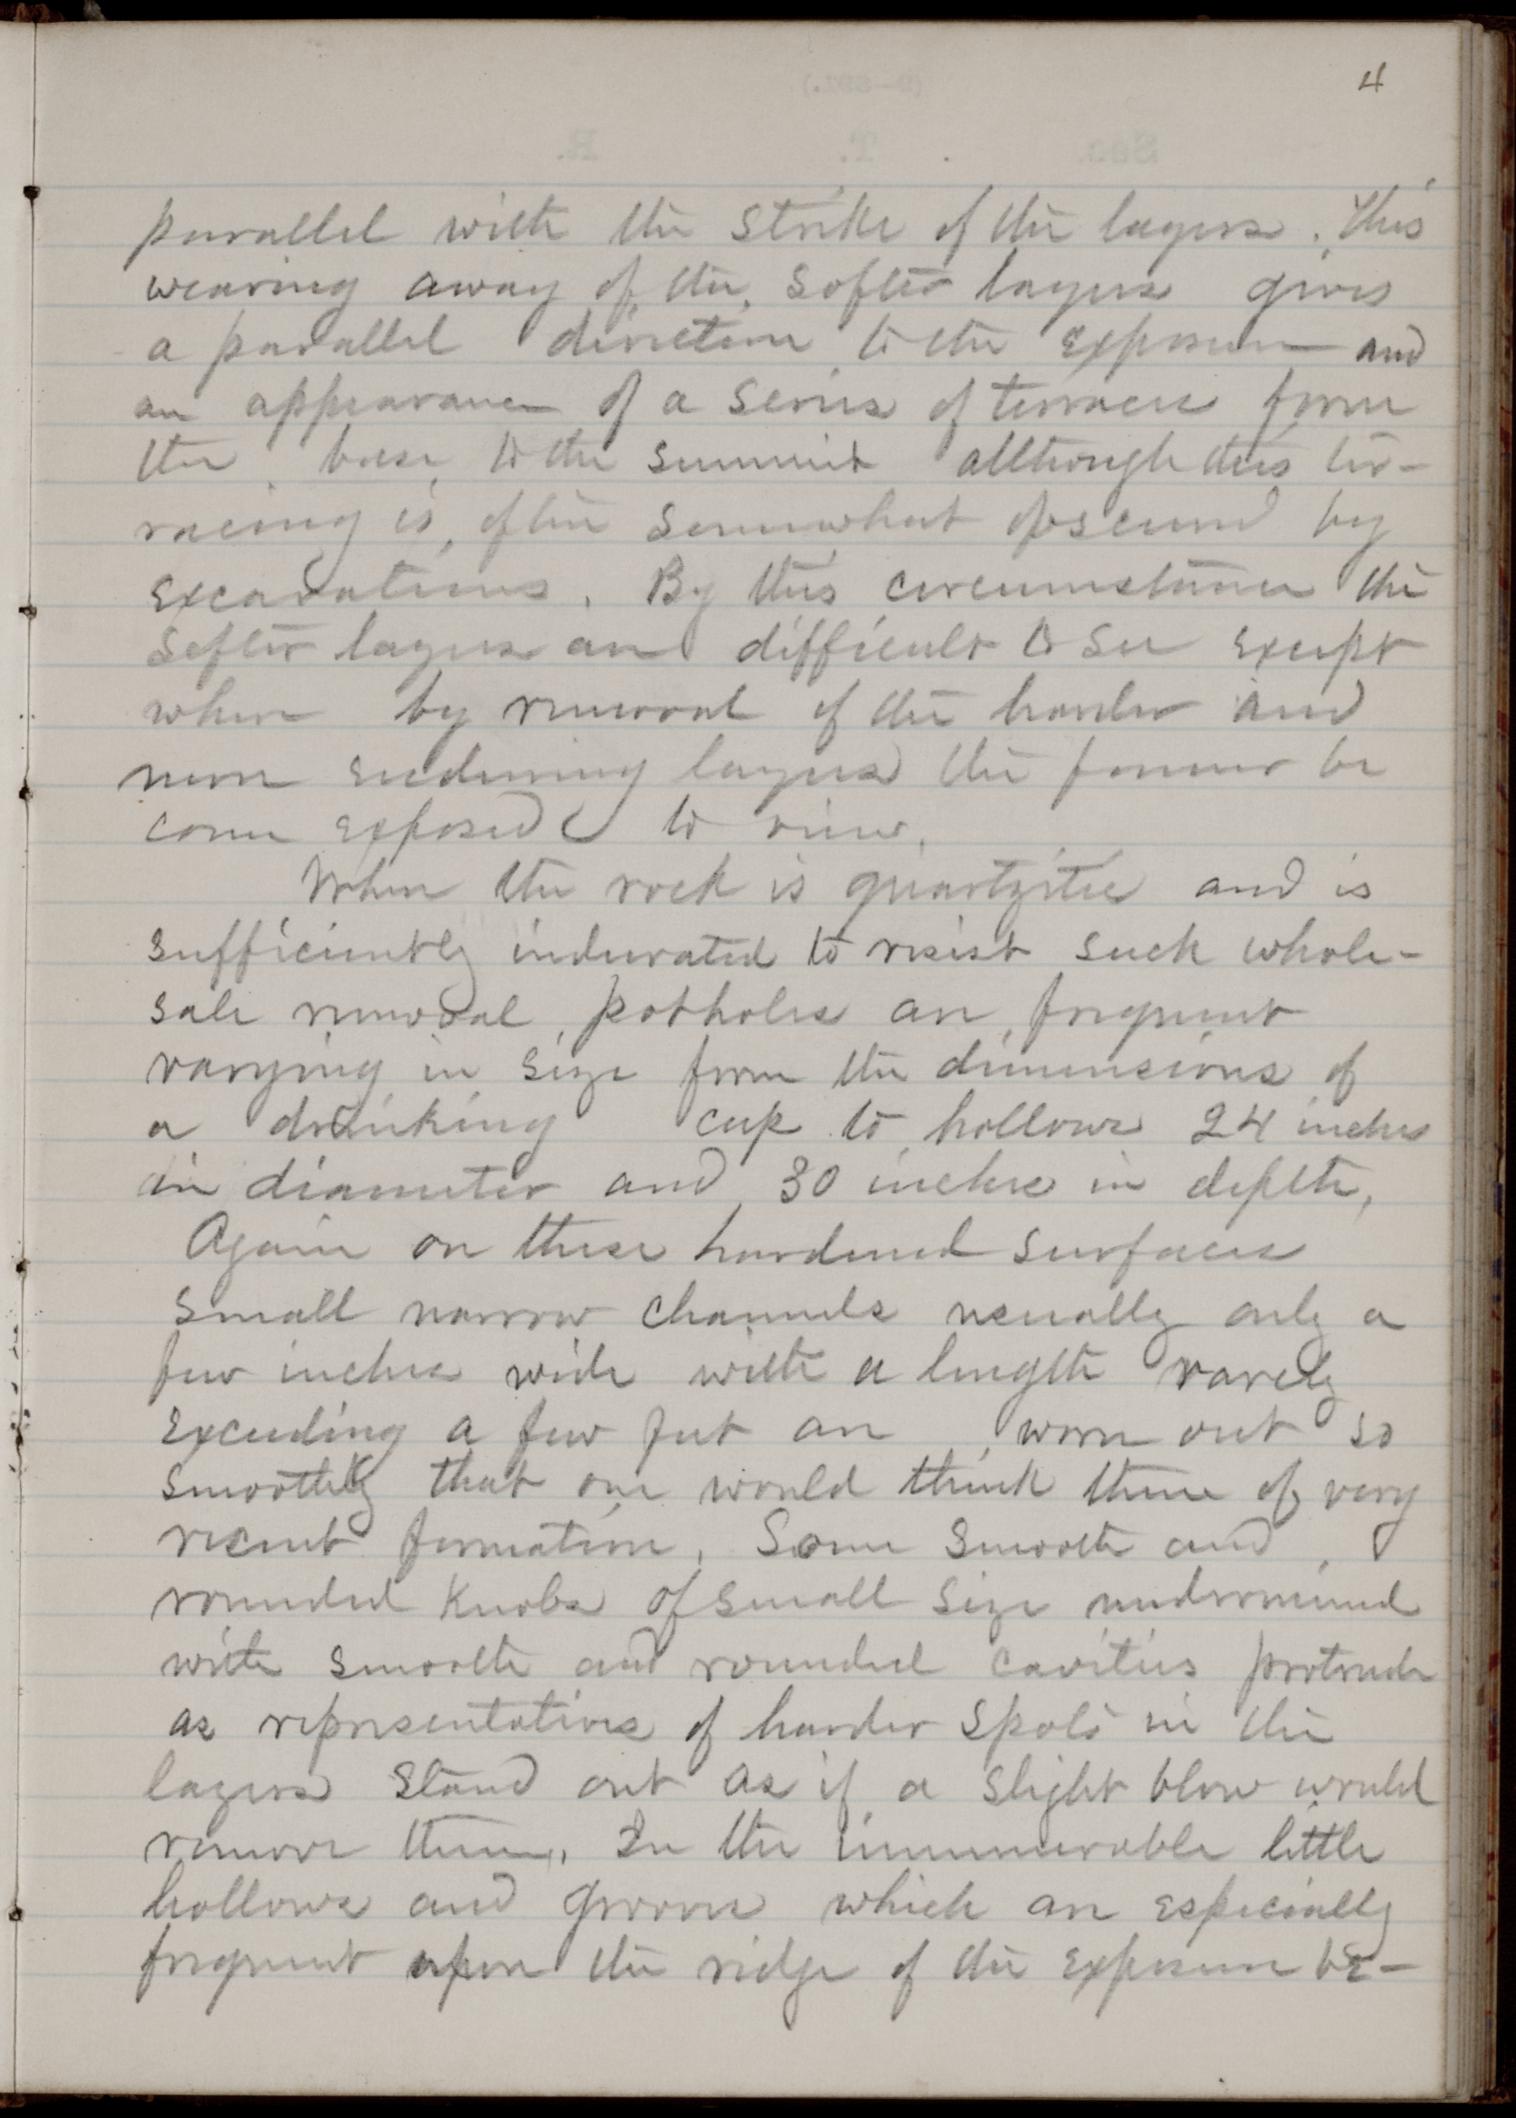 4
parallel with the strike of the layers. This
wearing away of the softer layers gives
a parallel direction to the exposure and
an appearance of a series of terraces from
the base to the summit although this ter-
racing is often somewhat obscured by
excavations. By this circumstance the
softer layers are difficult to see except
where by removal of the harder and
more enduring layers the former be
come exposed to view.
When the rock is quartzitic and is
sufficiently indurated to resist such whole-
sale removal, potholes are frequent
varying in size from the dimensions of
a drinking cup to hollows 24 inches
in diameter and 30 inches in depth,
Again on these hardened surfaces
small narrow channels usually only a
few inches wide with a length rarely
exceeding a few feet are worn out so
smoothly that one would think them of very
recent formation. Some smooth and
rounded knobs of small size undermined
with smooth and rounded cavities protrude
as representatives of harder spots in the
layers stand out as if a slight blow would
remove them. In the innumerable little
hollows and grooves which are especially
frequent upon the ridge of the exposure be-